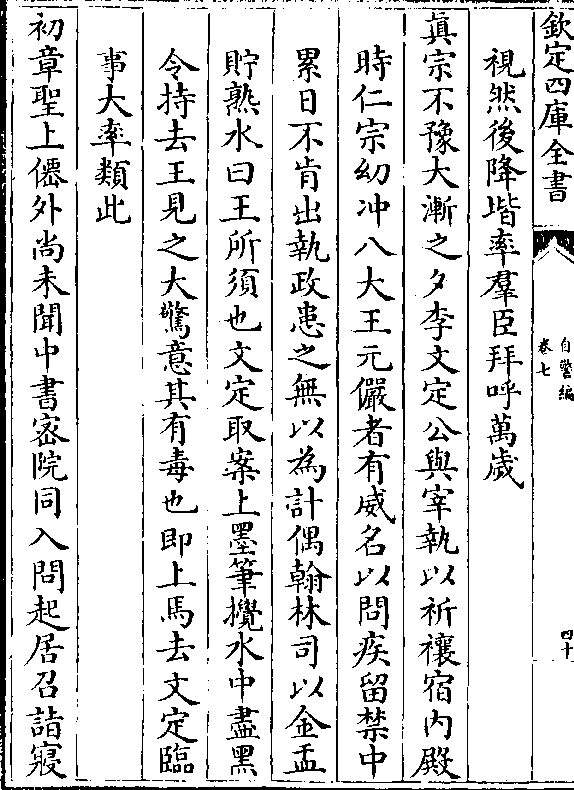 欽定四庫全書
自警編
卷七
四十
視然後降堦率羣臣拜呼萬歲
真宗不豫大漸之夕李文定公與宰執以祈禳宿内殿
時仁宗幼冲八大王元儼者有威名以問疾留禁中
累日不肯出執政患之無以為計偶翰林司以金盂
貯熟水曰王所須也文定取案上墨筆攪水中盡黑
令持去王見之大驚意其有毒也即上馬去文定臨
事大率類此
初章聖上僊外尚未聞中書宻院同入問起居召詣寢